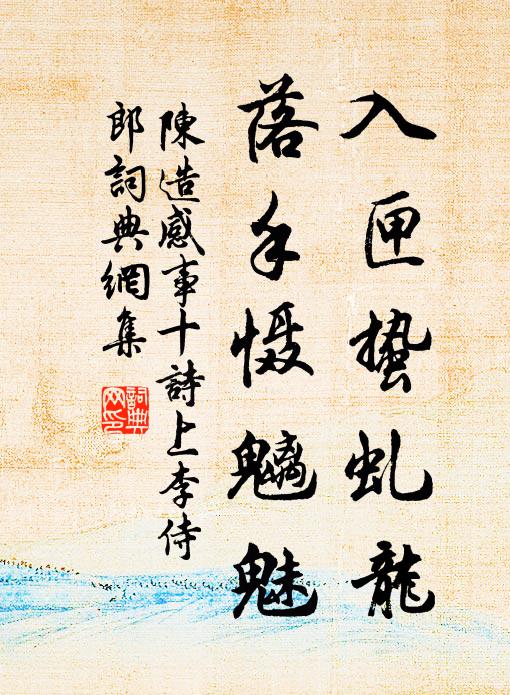 入匣蟄虬龍
落手慑魑魅
陳造感事十詩上李侍
郎詞典網集
詞典
网印